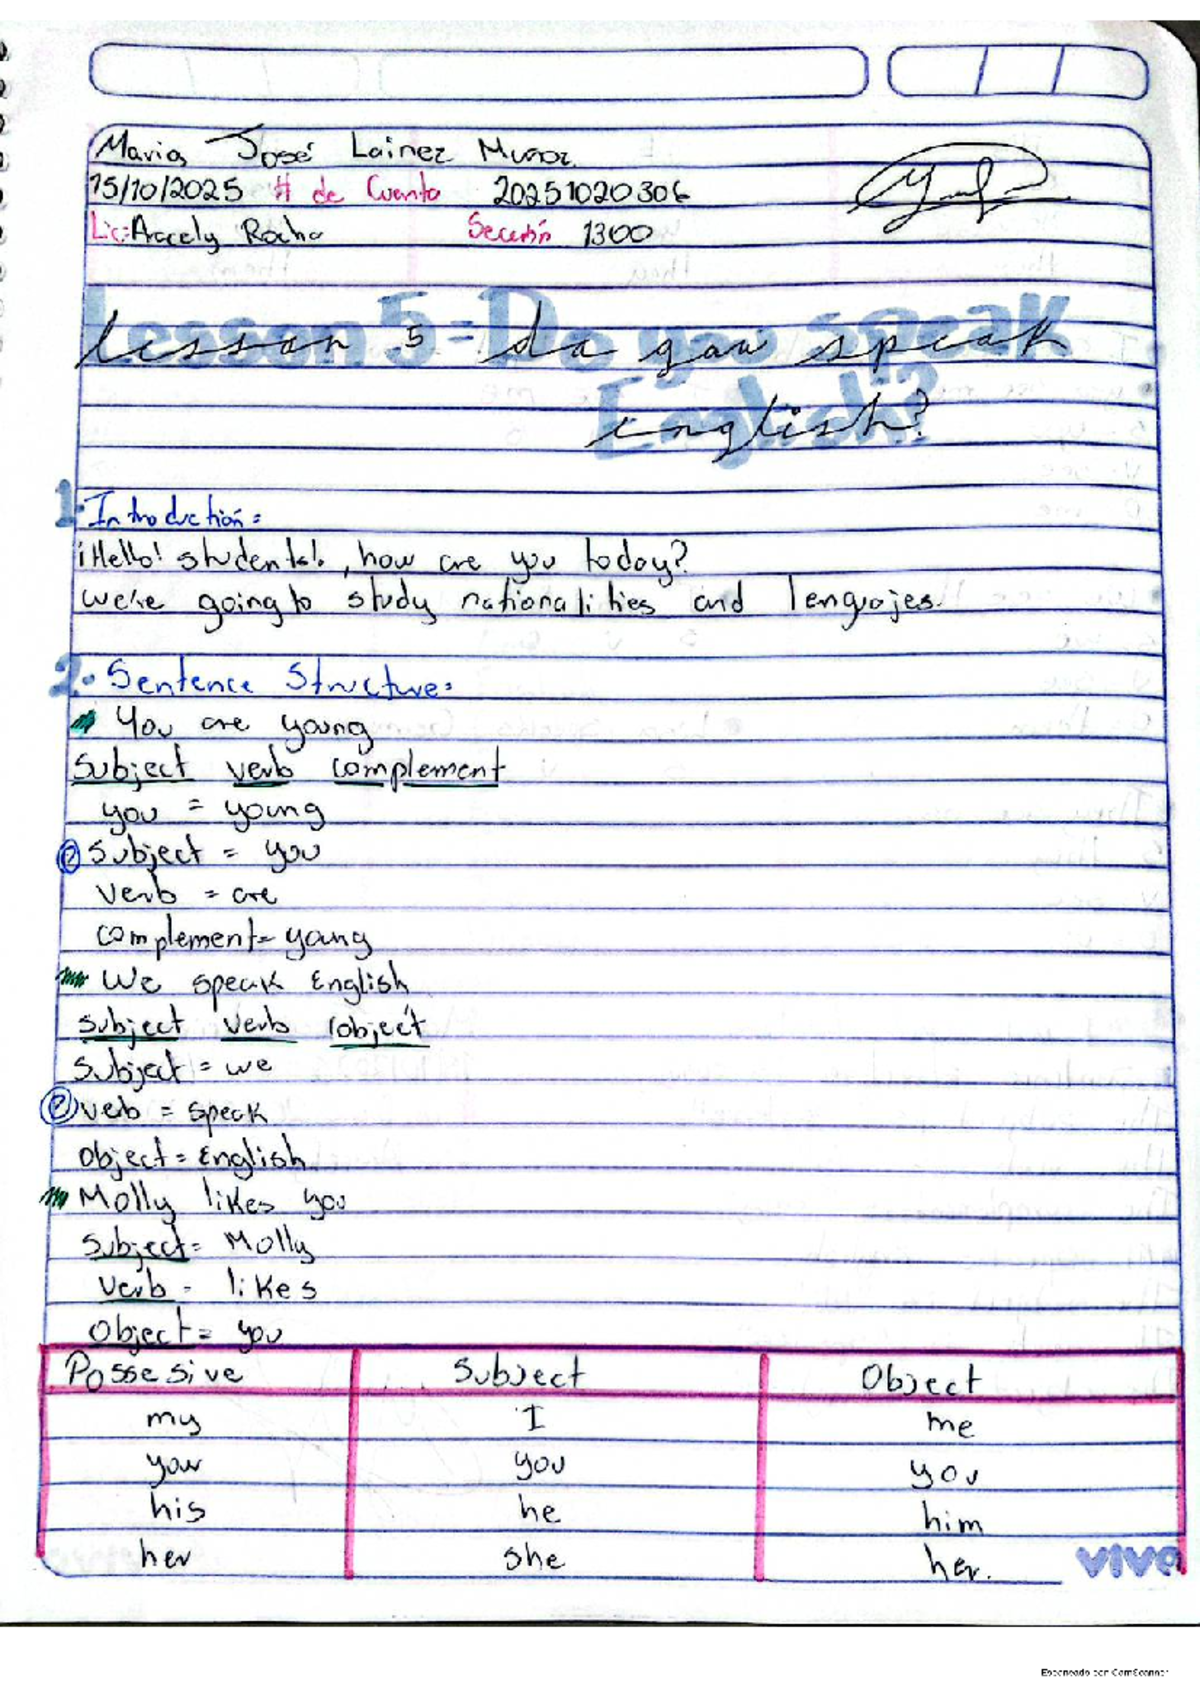 Maria José Lainez Muñoz
15/10/2025 # de Cuenta 20251020306
Lic: Aracely Rocha Sección 1300
Lesson 5 - Do you speak
English?
1. Introduction:
¡Hello! students!, how are you today?
we're going to study nationalities and lenguajes.
2. Sentence Structure:
You are young
Subject verb complement
you = young
Subject = you
verb = are
complement = young
We speak English
subject verb object
Subject = we
veb = speak
object = English
Molly likes you
Subject = Molly
Verb = likes
Object = you
Possesive Subject Object
my I me
your you you
his he him
her she her.
vivo
Escaneado con CamScanner